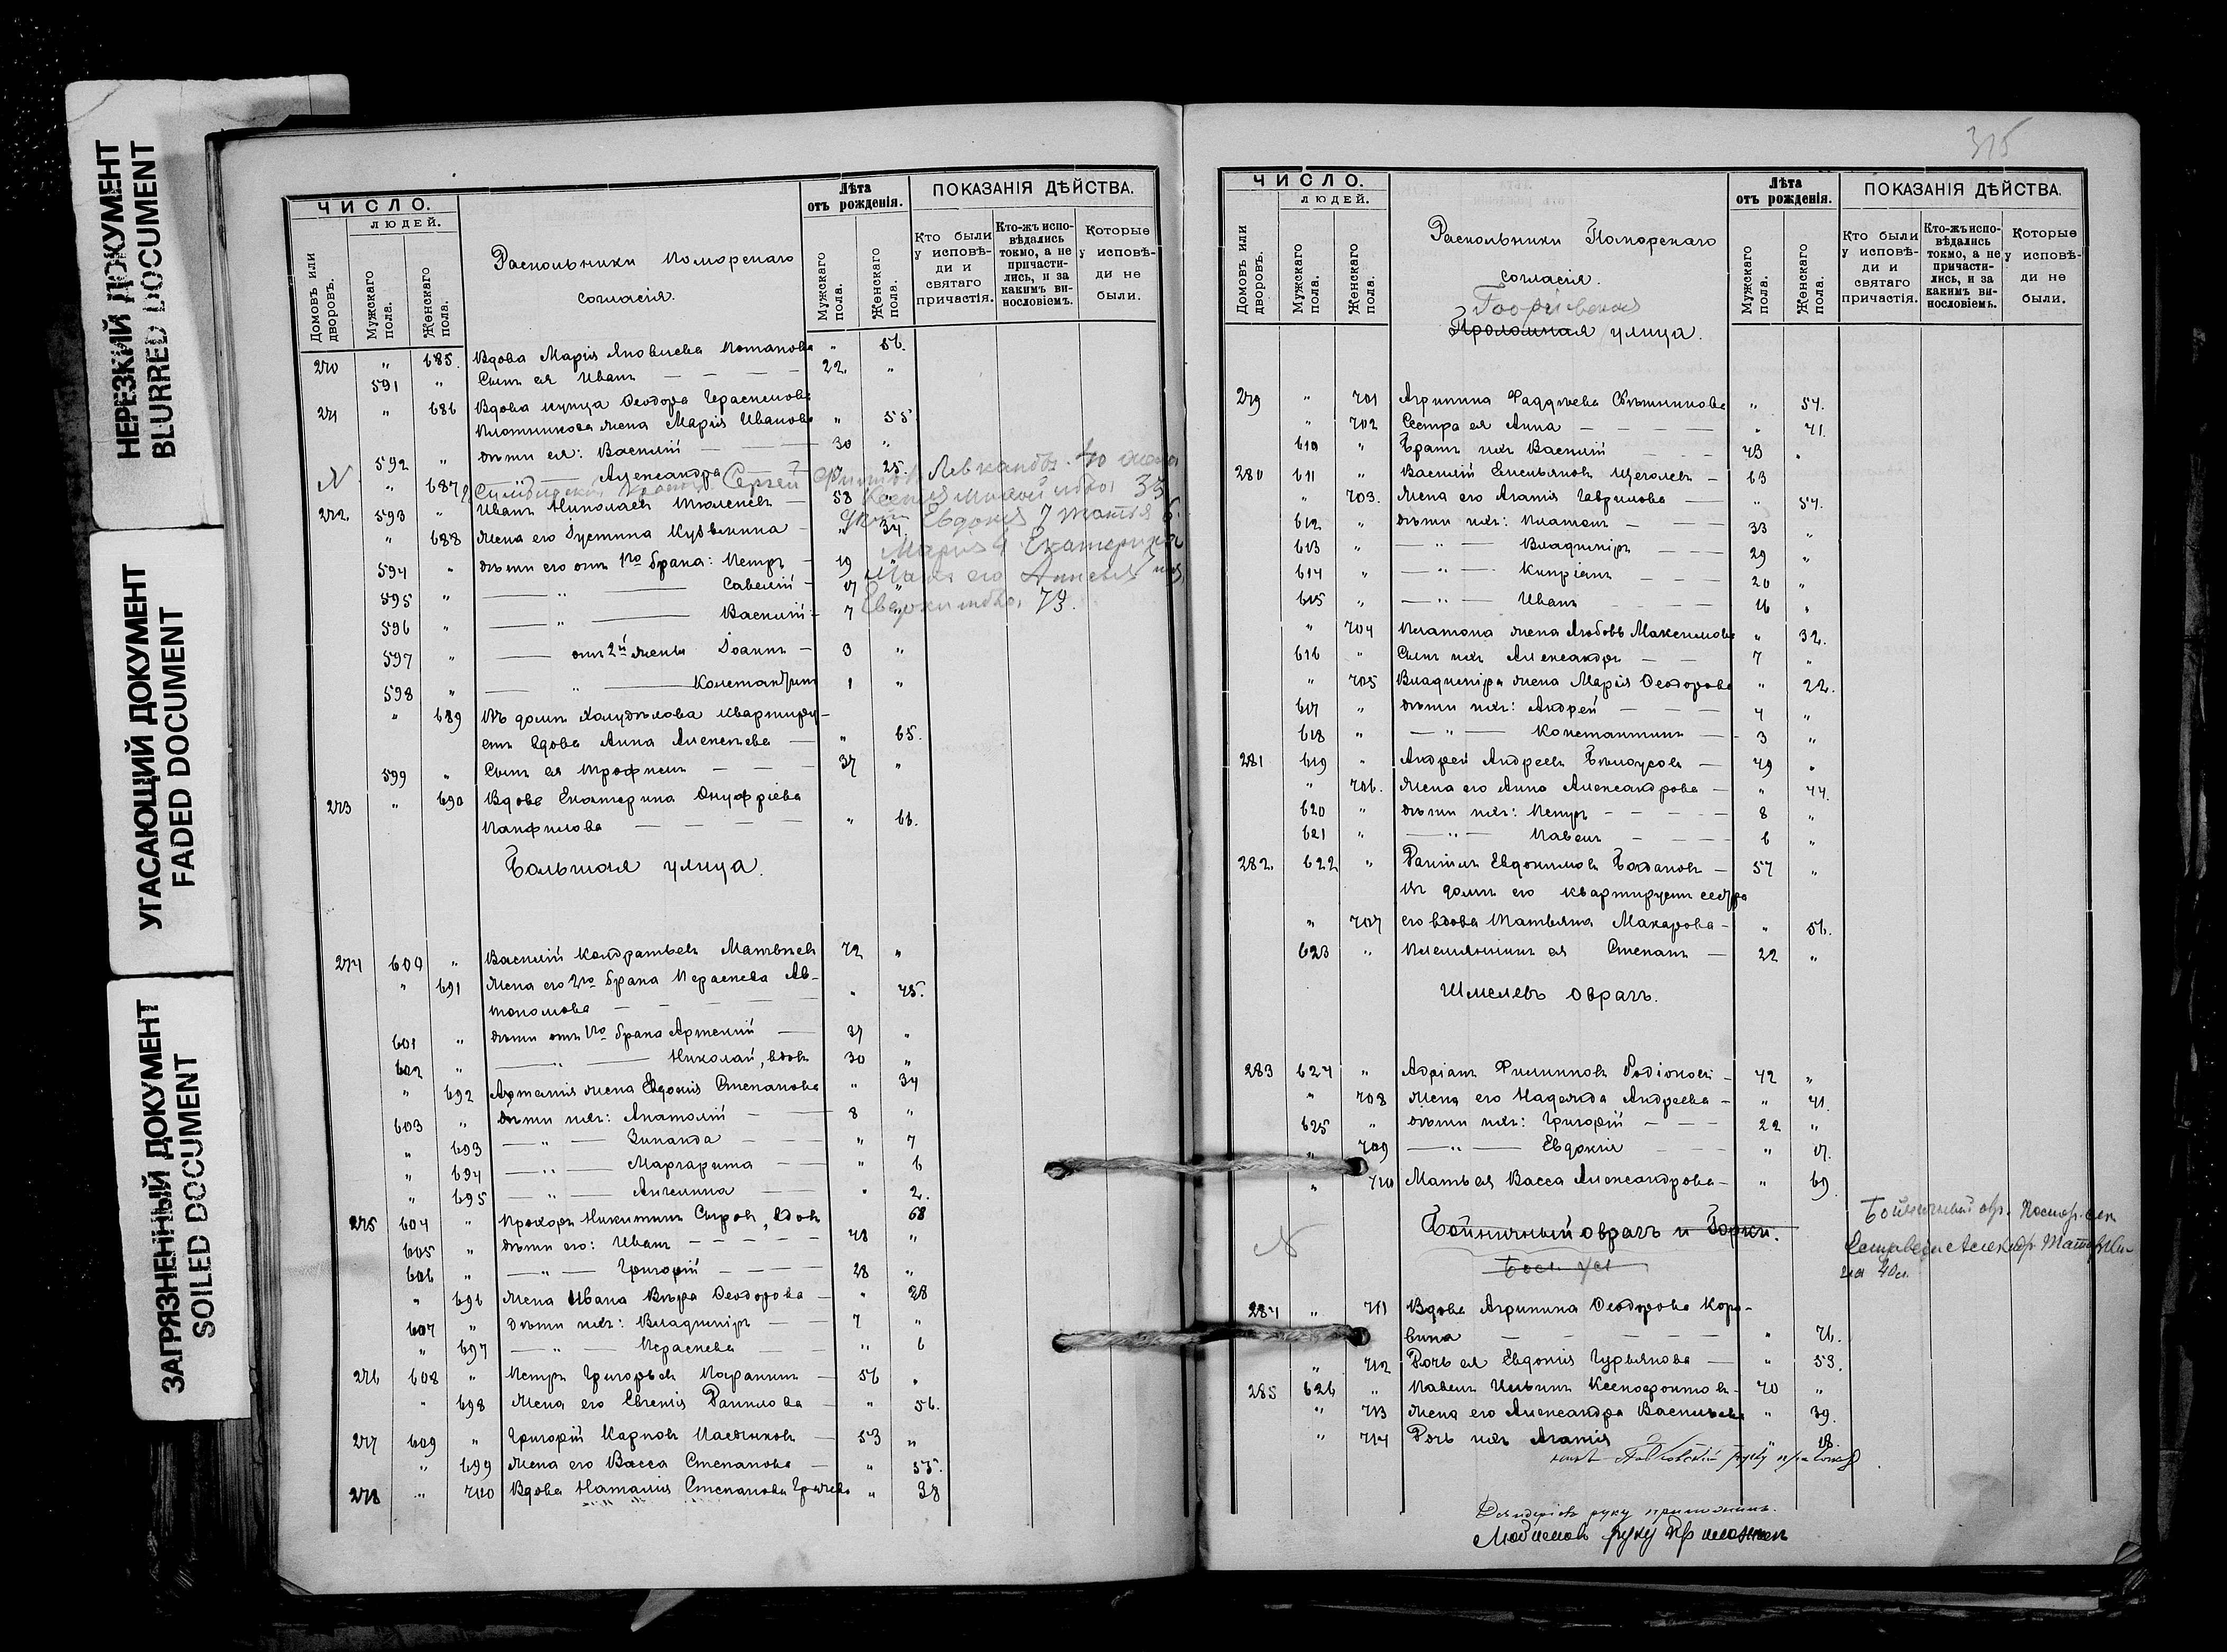 НЕРЕЗКИЙ ДОКУМЕНТ
BLURRED DOCUMENT
УГАСАЮЩИЙ ДОКУМЕНТ
FADED DOCUMENT
ЗАГРЯЗНЕННЫЙ ДОКУМЕНТ
SOILED DOCUMENT
ЧИСЛО.
ЛЮДЕЙ.
Домовъ или дворовъ.
Мужскаго пола.
Женскаго пола.
Раскольники Поморскаго
согласія.
Лѣта
отъ рожденія.
Мужскаго пола.
Женскаго пола.
ПОКАЗАНІЯ ДѢЙСТВА.
Кто были
у исповѣ-
ди и
святаго
причастія.
Кто-жъ испо-
вѣдались
токмо, а не
причасти-
лись, и за
какимъ ви-
нословіемъ.
Которые
у исповѣ-
ди не
были.
270 " 685. Вдова Марія Яковлева Потапова " 56.
591 " Сынъ ея Иванъ — 22. "
271 " 686 Вдова купца Ѳеодора Герасимова
Плотникова жена Марія Иванова " 55.
592 " дѣти ея: Василій — 30 "
N " 687 Александра " 25.
272. 593 " Иванъ Николаевъ 58 "
" 688 Жена его Іустина " 34.
594 " дѣти его отъ 1го брака: Петръ — 19 "
595 " — " — Савелій — 17 "
596 " — " — Василій — 7 "
597 " — отъ 2й жены Іоаннъ — 3 "
598 " — " — Константинъ 1 "
" 689 Въ домѣ квартиру-
етъ вдова Анна Алексѣева — " 65.
599 " Сынъ ея Трофимъ — 37 "
273 " 690 Вдова Екатерина Онуфріева
Панфилова — " 66.
Большая улица.
274 600 " Василій Кондратьевъ Матвѣевъ 72 "
" 691 Жена его 2го брака Параскева Ав-
тономова — " 75.
601 " дѣти отъ 1го брака Артемій — 37 "
602 " — " — Николай, вдовъ 30 "
" 692 Артемія жена Евдокія Степанова " 34
603 " дѣти ихъ: Анатолій — 8 "
" 693 — " — Зинаида — " 7
" 694 — " — Маргарита — " 6
" 695 — " — Ангелина — " 2.
275 604 " Прохоръ Никитинъ Сыровъ, вдовъ 68
605 " дѣти его: Иванъ — 28 "
606 " — " — Григорій — 28 "
" 696 Жена Ивана Вѣра Ѳеодорова — " 28
607 " дѣти ихъ: Владиміръ — 7 "
" 697 — " — Параскева — " 6
276 608 " Петръ Григорьевъ 56 "
" 698 Жена его Евгенія Данилова — " 56.
277 609 " Григорій Карповъ 53 "
" 699 Жена его Васса Степанова — " 55.
278 " 700 Вдова Наталія Степанова " 38
315
ЧИСЛО.
ЛЮДЕЙ.
Домовъ или дворовъ.
Мужскаго пола.
Женскаго пола.
Раскольники Поморскаго
согласія.
Проломная улица.
Лѣта
отъ рожденія.
Мужскаго пола.
Женскаго пола.
ПОКАЗАНІЯ ДѢЙСТВА.
Кто были
у исповѣ-
ди и
святаго
причастія.
Кто-жъ испо-
вѣдались
токмо, а не
причасти-
лись, и за
какимъ ви-
нословіемъ.
Которые
у исповѣ-
ди не
были.
279 " 701 Агрипина Фаддѣева " 54.
" 702 Сестра ея Анна — " 41.
610 " Братъ ихъ Василій — 43 "
280 611 " Василій Емельяновъ Щеголевъ — 63
" 703. Жена его Агафія Гаврилова — " 54.
612 " дѣти ихъ: Платонъ — 33 "
613 " — " — Владиміръ — 29 "
614 " — " — Кипріанъ — 20 "
615 " — " — Иванъ — 16 "
" 704 Платона жена Любовь Максимова " 32.
616 " Сынъ ихъ Александръ — 7 "
" 705 Владиміра жена Марія Ѳеодорова " 22.
617 " дѣти ихъ: Андрей — 4 "
618 " — " — Константинъ — 3 "
281 619 " Андрей Андреевъ Бѣлоусовъ — 49 "
" 706. Жена его Анна Александрова — " 44.
620 " дѣти ихъ: Петръ — 8 "
621 " — " — Павелъ — 6 "
282. 622 " Даніилъ Евдокимовъ 57 "
Въ домѣ его квартируетъ сестра
" 707 его вдова Татьяна Макарова — " 56.
623 " Племянникъ ея Степанъ — 22 "
Шмелевъ оврагъ.
283 624 " Адріанъ Филипповъ Родіоновъ — 42 "
" 708 Жена его Надежда Андреева — " 41.
625 " дѣти ихъ: Григорій — 22 "
" 709 — " — Евдокія — " 17.
" 710 Мать ея Васса Александрова — " 69.
N Бойничный оврагъ и Горки.
284 " 711 Вдова Агрипина Ѳеодорова Коро-
вина — " 76.
" 712 Дочь ея Евдокія Гурьянова — " 53.
285 626 " Павелъ Ильинъ Ксенофонтовъ — 40 "
" 713 Жена его Александра Васильева " 39.
" 714 Дочь ихъ Агафія " 18.
руку приложилъ.
руку приложилъ